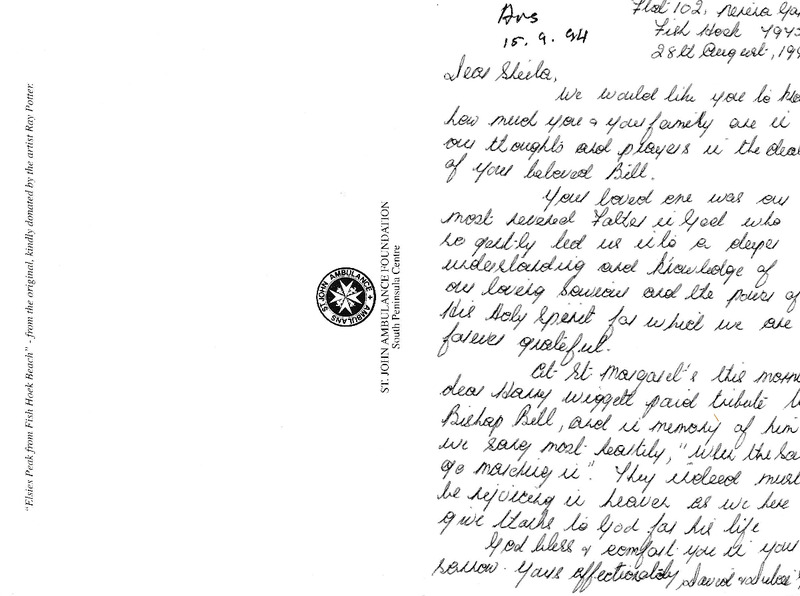 "Elsies Peak from Fish Hoek Beach" - from the original, kindly donated by the artist Ray Potter.
ST. JOHN AMBULANCE + AMBULANS
ST. JOHN AMBULANCE FOUNDATION
South Peninsula Centre
Ans
15.9.94
Flat 102,
Fish Hoek 797
28th August, 199
Dear Sheila,
We would like you to
how much you & your family are in
our thoughts and prayers in the
of your beloved Bill.
Your loved one was our
most revered Father in God who
so gently led us into a deeper
understanding and knowledge of
our loving Saviour and the power of
His Holy Spirit for which we are
forever grateful.
At St Margaret's this
dear Harry Wiggett paid tribute
Bishop Bill, and in memory of him
we sang most heartily, "When the
go marching in". They indeed must
be rejoicing in heaven as we here
give thanks to God for his life
God bless & comfort you in your
sorrow. Yours affectionately, David &